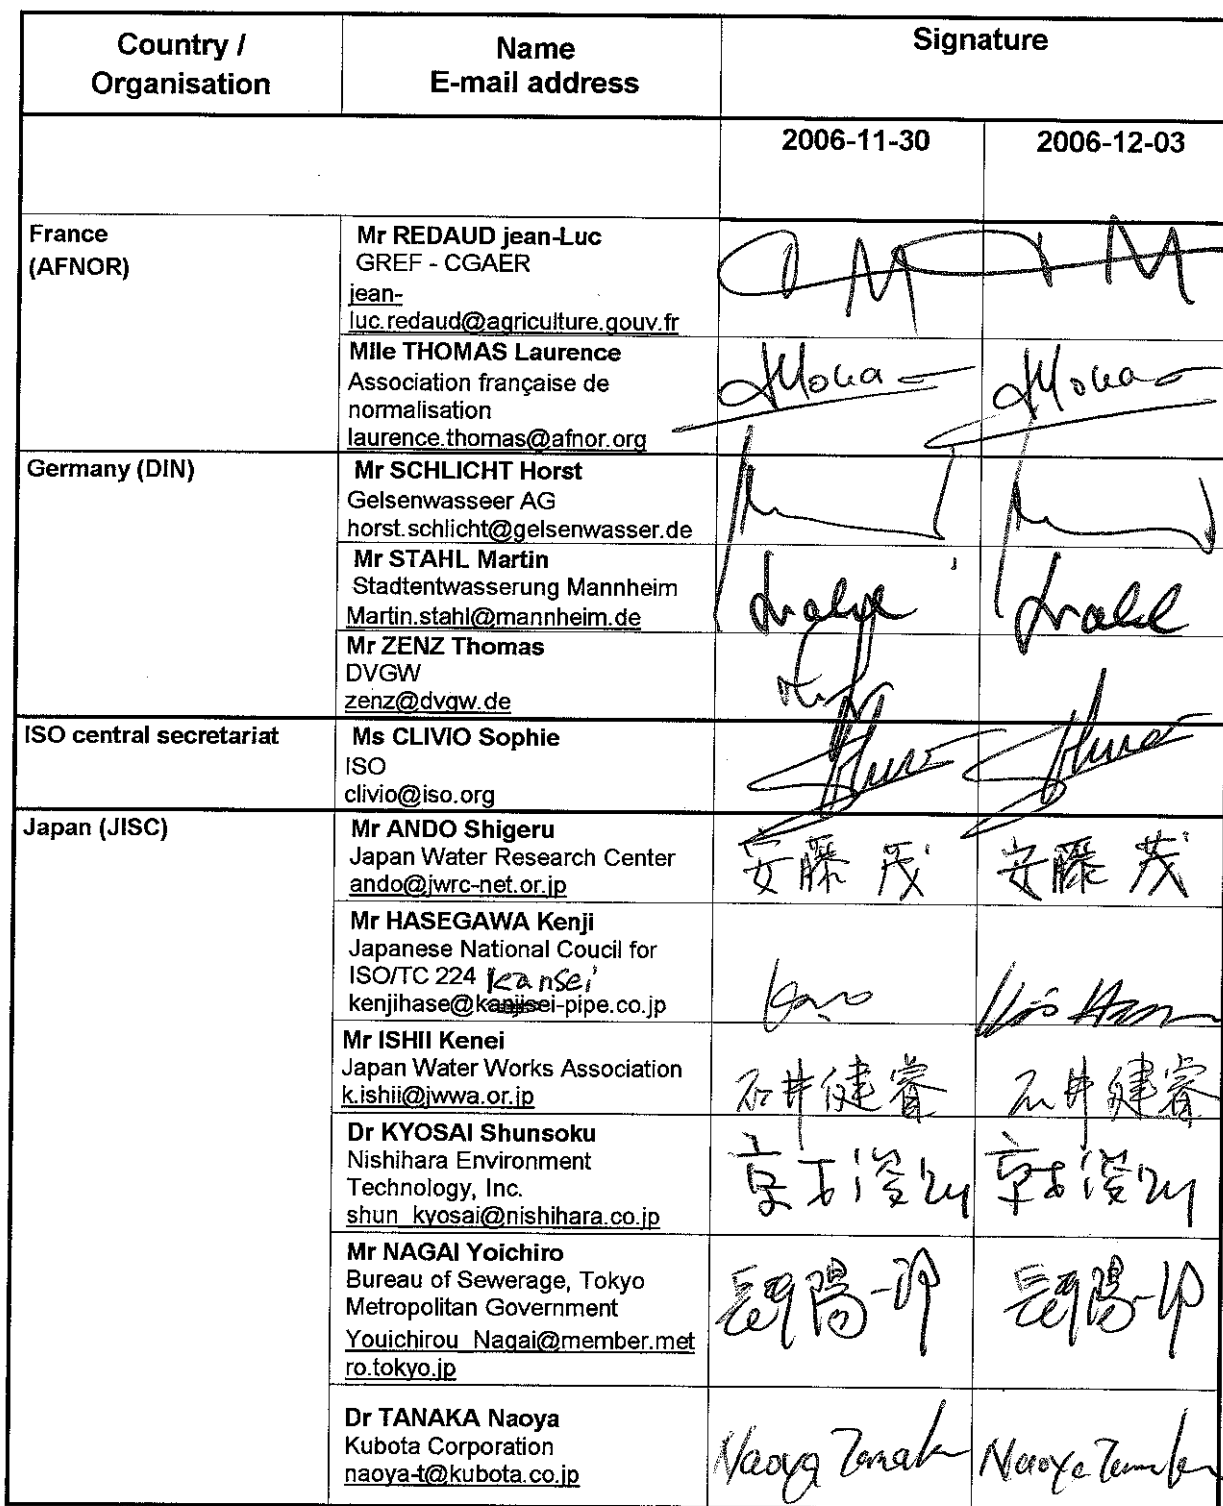 Country /
Organisation
Name
E-mail address
Signature
2006-11-30
2006-12-03
France
(AFNOR)
Mr REDAUD jean-Luc
GREF - CGAER
jean-
luc.redaud@agriculture.gouv.fr
Mlle THOMAS Laurence
Association française de
normalisation
laurence.thomas@afnor.org
Germany (DIN)
Mr SCHLICHT Horst
Gelsenwasseer AG
horst.schlicht@gelsenwasser.de
Mr STAHL Martin
Stadtentwasserung Mannheim
Martin.stahl@mannheim.de
Mr ZENZ Thomas
DVGW
zenz@dvgw.de
ISO central secretariat
Ms CLIVIO Sophie
ISO
clivio@iso.org
Japan (JISC)
Mr ANDO Shigeru
Japan Water Research Center
ando@jwrc-net.or.jp
安藤 茂 安藤 茂
Mr HASEGAWA Kenji
Japanese National Coucil for
ISO/TC 224 kansei
kenjihase@kanjisei-pipe.co.jp
Mr ISHII Kenei
Japan Water Works Association
k.ishii@jwwa.or.jp
石井健睿 石井健睿
Dr KYOSAI Shunsoku
Nishihara Environment
Technology, Inc.
shun_kyosai@nishihara.co.jp
Mr NAGAI Yoichiro
Bureau of Sewerage, Tokyo
Metropolitan Government
Youichirou_Nagai@member.met
ro.tokyo.jp
Dr TANAKA Naoya
Kubota Corporation
naoya-t@kubota.co.jp
Naoya Tanaka Naoya Tanaka